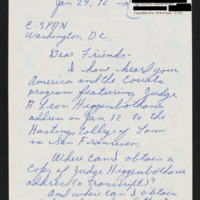 Jan 29, '92
C-SPAN
Washington, D.C.
Dear Friends-
I have heard your
America and the Courts
program featuring Judge
A. Leon Higgenbotham
address on Jan 12 to the
Hastings College of Law
in San Francisco.
Where can I obtain a
copy of Judge Higgenbotham
address (a transcript)?
And where can I obtain